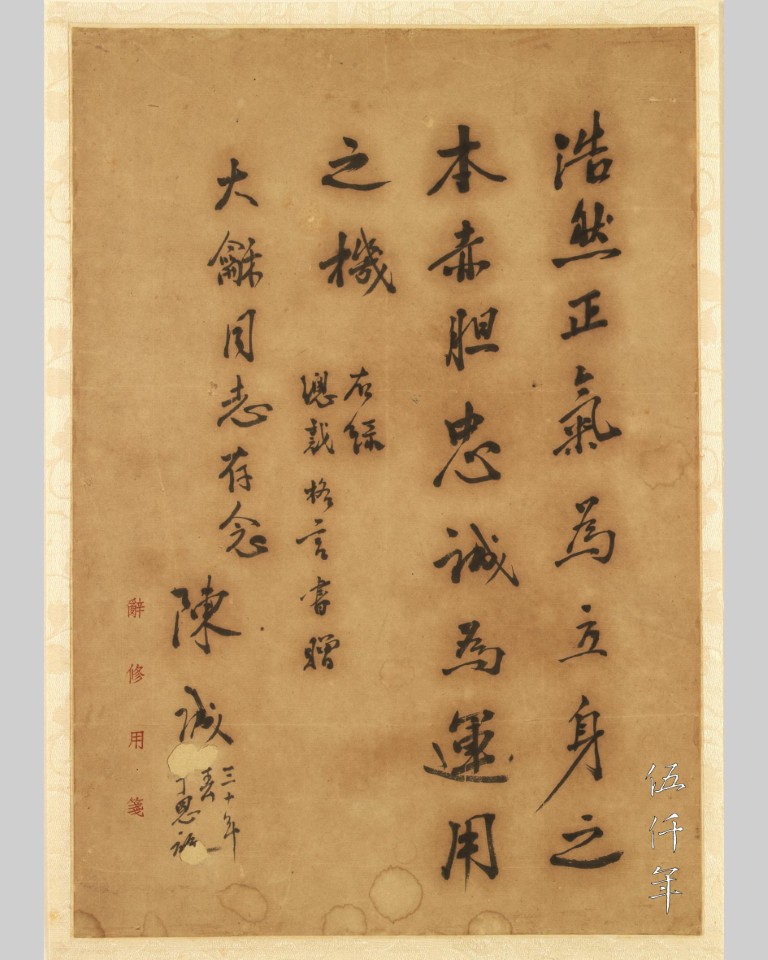 浩然正氣為立身之
本赤胆忠誠為運用
之機
右録
總裁格言書贈
大龢同志存念
陳誠
三十年
春
恩施
辭修用箋
伍仟年